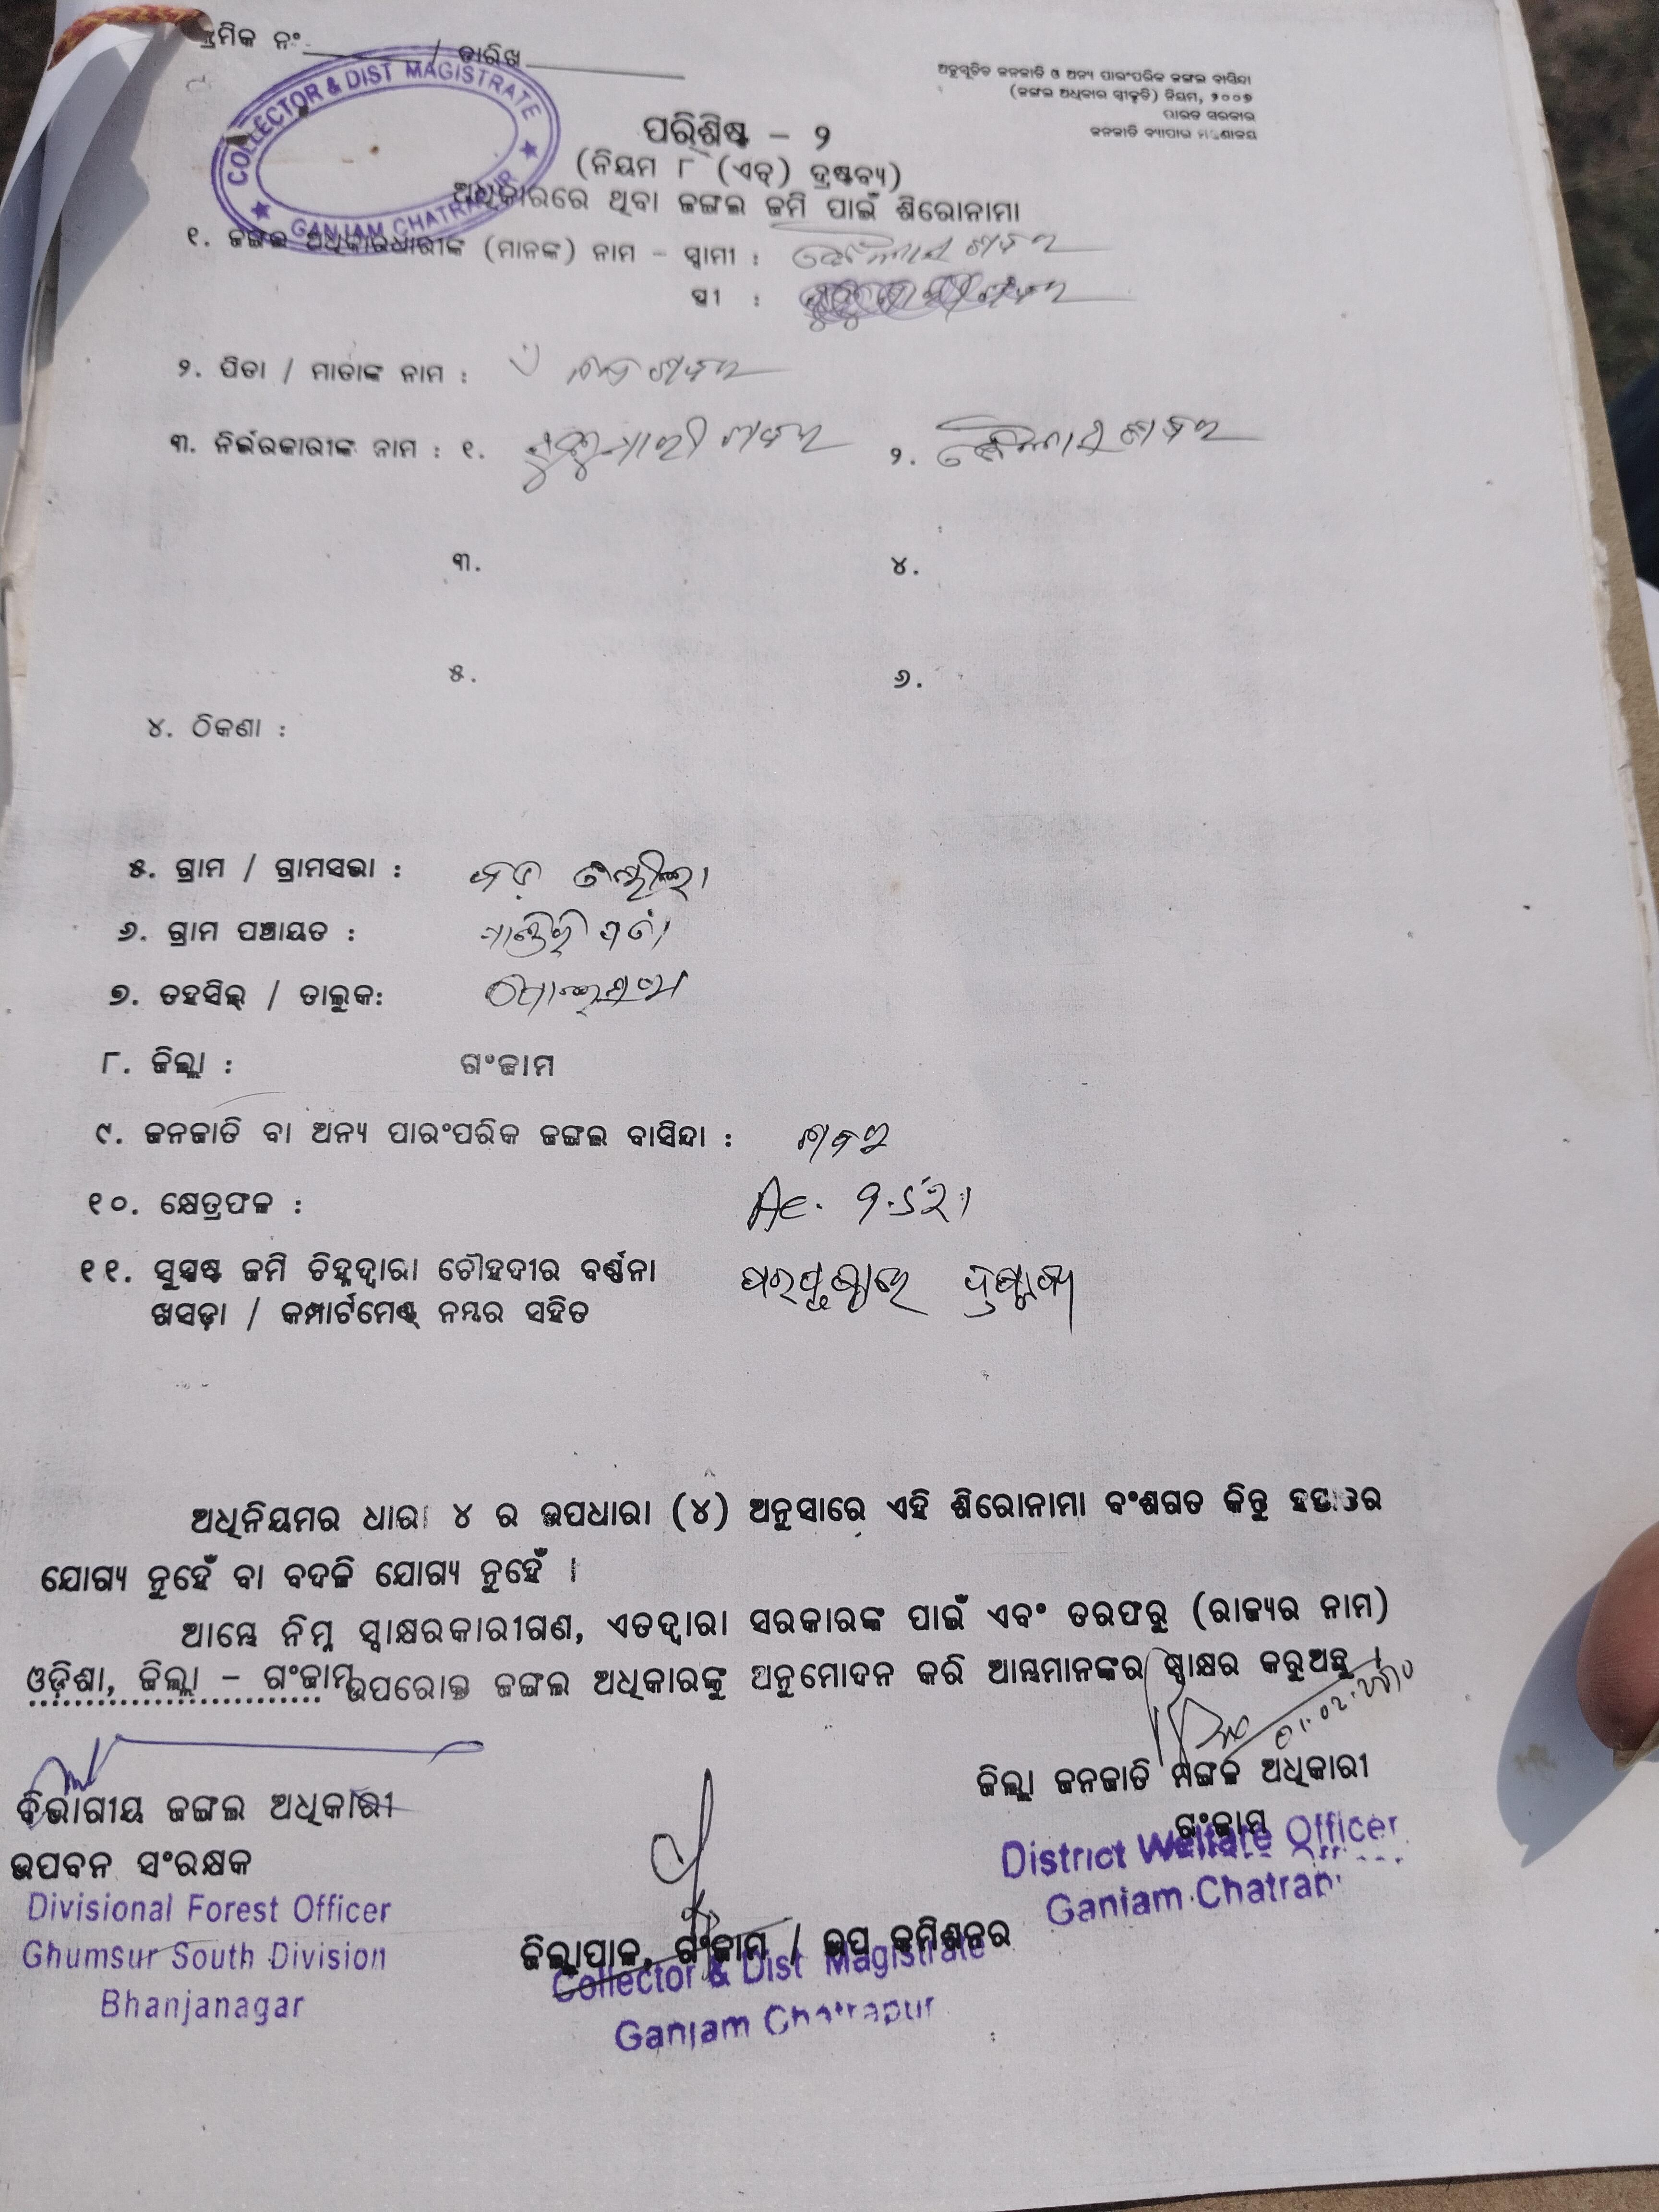 କ୍ରମିକ ନଂ / ତାରିଖ
COLLECTOR & DIST MAGISTRATE
GANJAM CHATRAPUR
ଅନୁସୂଚିତ ଜନଜାତି ଓ ଅନ୍ୟ ପାରଂପରିକ ଜଙ୍ଗଲ ବାସିନ୍ଦା
(ଜଙ୍ଗଲ ଅଧିକାର ସ୍ୱୀକୃତି) ନିୟମ, ୨୦୦୭
ଭାରତ ସରକାର
ଜନଜାତି ବ୍ୟାପାର ମନ୍ତ୍ରଣାଳୟ
ପରିଶିଷ୍ଟ – ୨
(ନିୟମ ୮ (ଏଚ୍) ଦ୍ରଷ୍ଟବ୍ୟ)
ଅଧିକାରରେ ଥିବା ଜଙ୍ଗଲ ଜମି ପାଇଁ ଶିରୋନାମା
୧. ଜଙ୍ଗଲ ଅଧିକାରଧାରୀଙ୍କ (ମାନଙ୍କ) ନାମ – ସ୍ୱାମୀ : ଶବର
ସ୍ତ୍ରୀ :
୨. ପିତା / ମାତାଙ୍କ ନାମ : ଶବର
୩. ନିର୍ଭରକାରୀଙ୍କ ନାମ : ୧. ଶବର ୨. ଶବର
୩. ୪.
୫. ୬.
୪. ଠିକଣା :
୫. ଗ୍ରାମ / ଗ୍ରାମସଭା : ବଡ଼
୬. ଗ୍ରାମ ପଞ୍ଚାୟତ :
୭. ତହସିଲ୍ / ତାଲୁକ:
୮. ଜିଲ୍ଲା : ଗଂଜାମ
୯. ଜନଜାତି ବା ଅନ୍ୟ ପାରଂପରିକ ଜଙ୍ଗଲ ବାସିନ୍ଦା : ଶବର
୧୦. କ୍ଷେତ୍ରଫଳ : Ac.
୧୧. ସୁସ୍ପଷ୍ଟ ଜମି ଚିହ୍ନଦ୍ୱାରା ଚୌହଦୀର ବର୍ଣ୍ଣନା ପରପୃଷ୍ଠାରେ ଦ୍ରଷ୍ଟବ୍ୟ
ଖସଡ଼ା / କମ୍ପାର୍ଟମେଣ୍ଟ୍ ନମ୍ବର ସହିତ
ଅଧିନିୟମର ଧାରା ୪ ର ଉପଧାରା (୪) ଅନୁସାରେ ଏହି ଶିରୋନାମା ବଂଶଗତ କିନ୍ତୁ ହସ୍ତାନ୍ତର
ଯୋଗ୍ୟ ନୁହେଁ ବା ବଦଳି ଯୋଗ୍ୟ ନୁହେଁ ।
ଆମ୍ଭେ ନିମ୍ନ ସ୍ୱାକ୍ଷରକାରୀଗଣ, ଏତଦ୍ୱାରା ସରକାରଙ୍କ ପାଇଁ ଏବଂ ତରଫରୁ (ରାଜ୍ୟର ନାମ)
ଓଡ଼ିଶା, ଜିଲ୍ଲା – ଗଂଜାମ ଉପରୋକ୍ତ ଜଙ୍ଗଲ ଅଧିକାରଙ୍କୁ ଅନୁମୋଦନ କରି ଆମ୍ଭମାନଙ୍କର ସ୍ୱାକ୍ଷର କରୁଅଛୁ ।
ଜିଲ୍ଲା ଜନଜାତି ମଙ୍ଗଳ ଅଧିକାରୀ
ଗଂଜାମ
District Welfare Officer
Ganjam Chatrapur
ବିଭାଗୀୟ ଜଙ୍ଗଲ ଅଧିକାରୀ
ଉପବନ ସଂରକ୍ଷକ
Divisional Forest Officer
Ghumsur South Division
Bhanjanagar
ଜିଲ୍ଲାପାଳ, ଗଂଜାମ / ଉପ କମିଶନର
Collector & Dist Magistrate
Ganjam Chatrapur